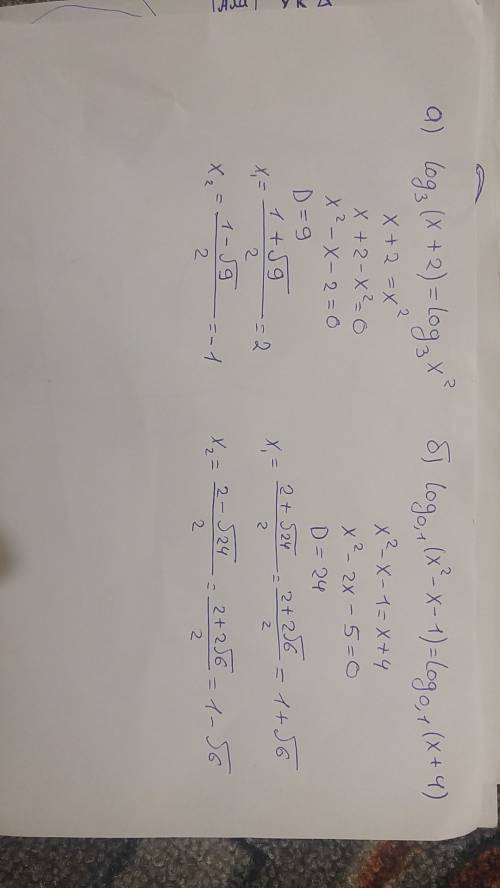 а) log₃(x+2)=log₃x²
x+2=x²
x+2-x²=0
x²-x-2=0
D=9
x₁=(1+√9)/2=2
x₂=(1-√9)/2=-1
б) log₀,₁(x²-x-1)=log₀,₁(x+4)
x²-x-1=x+4
x²-2x-5=0
D=24
x₁=(2+√24)/2=(2+2√6)/2=1+√6
x₂=(2-√24)/2=(2+2√6)/2=1-√6